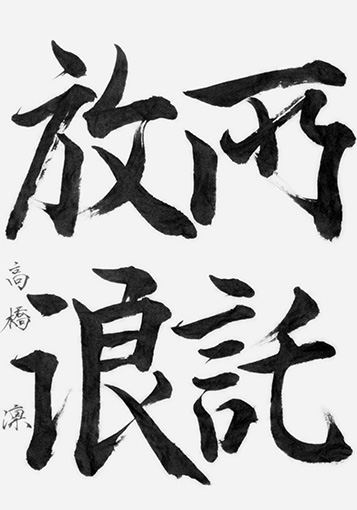 所託
放浪
高橋 凛